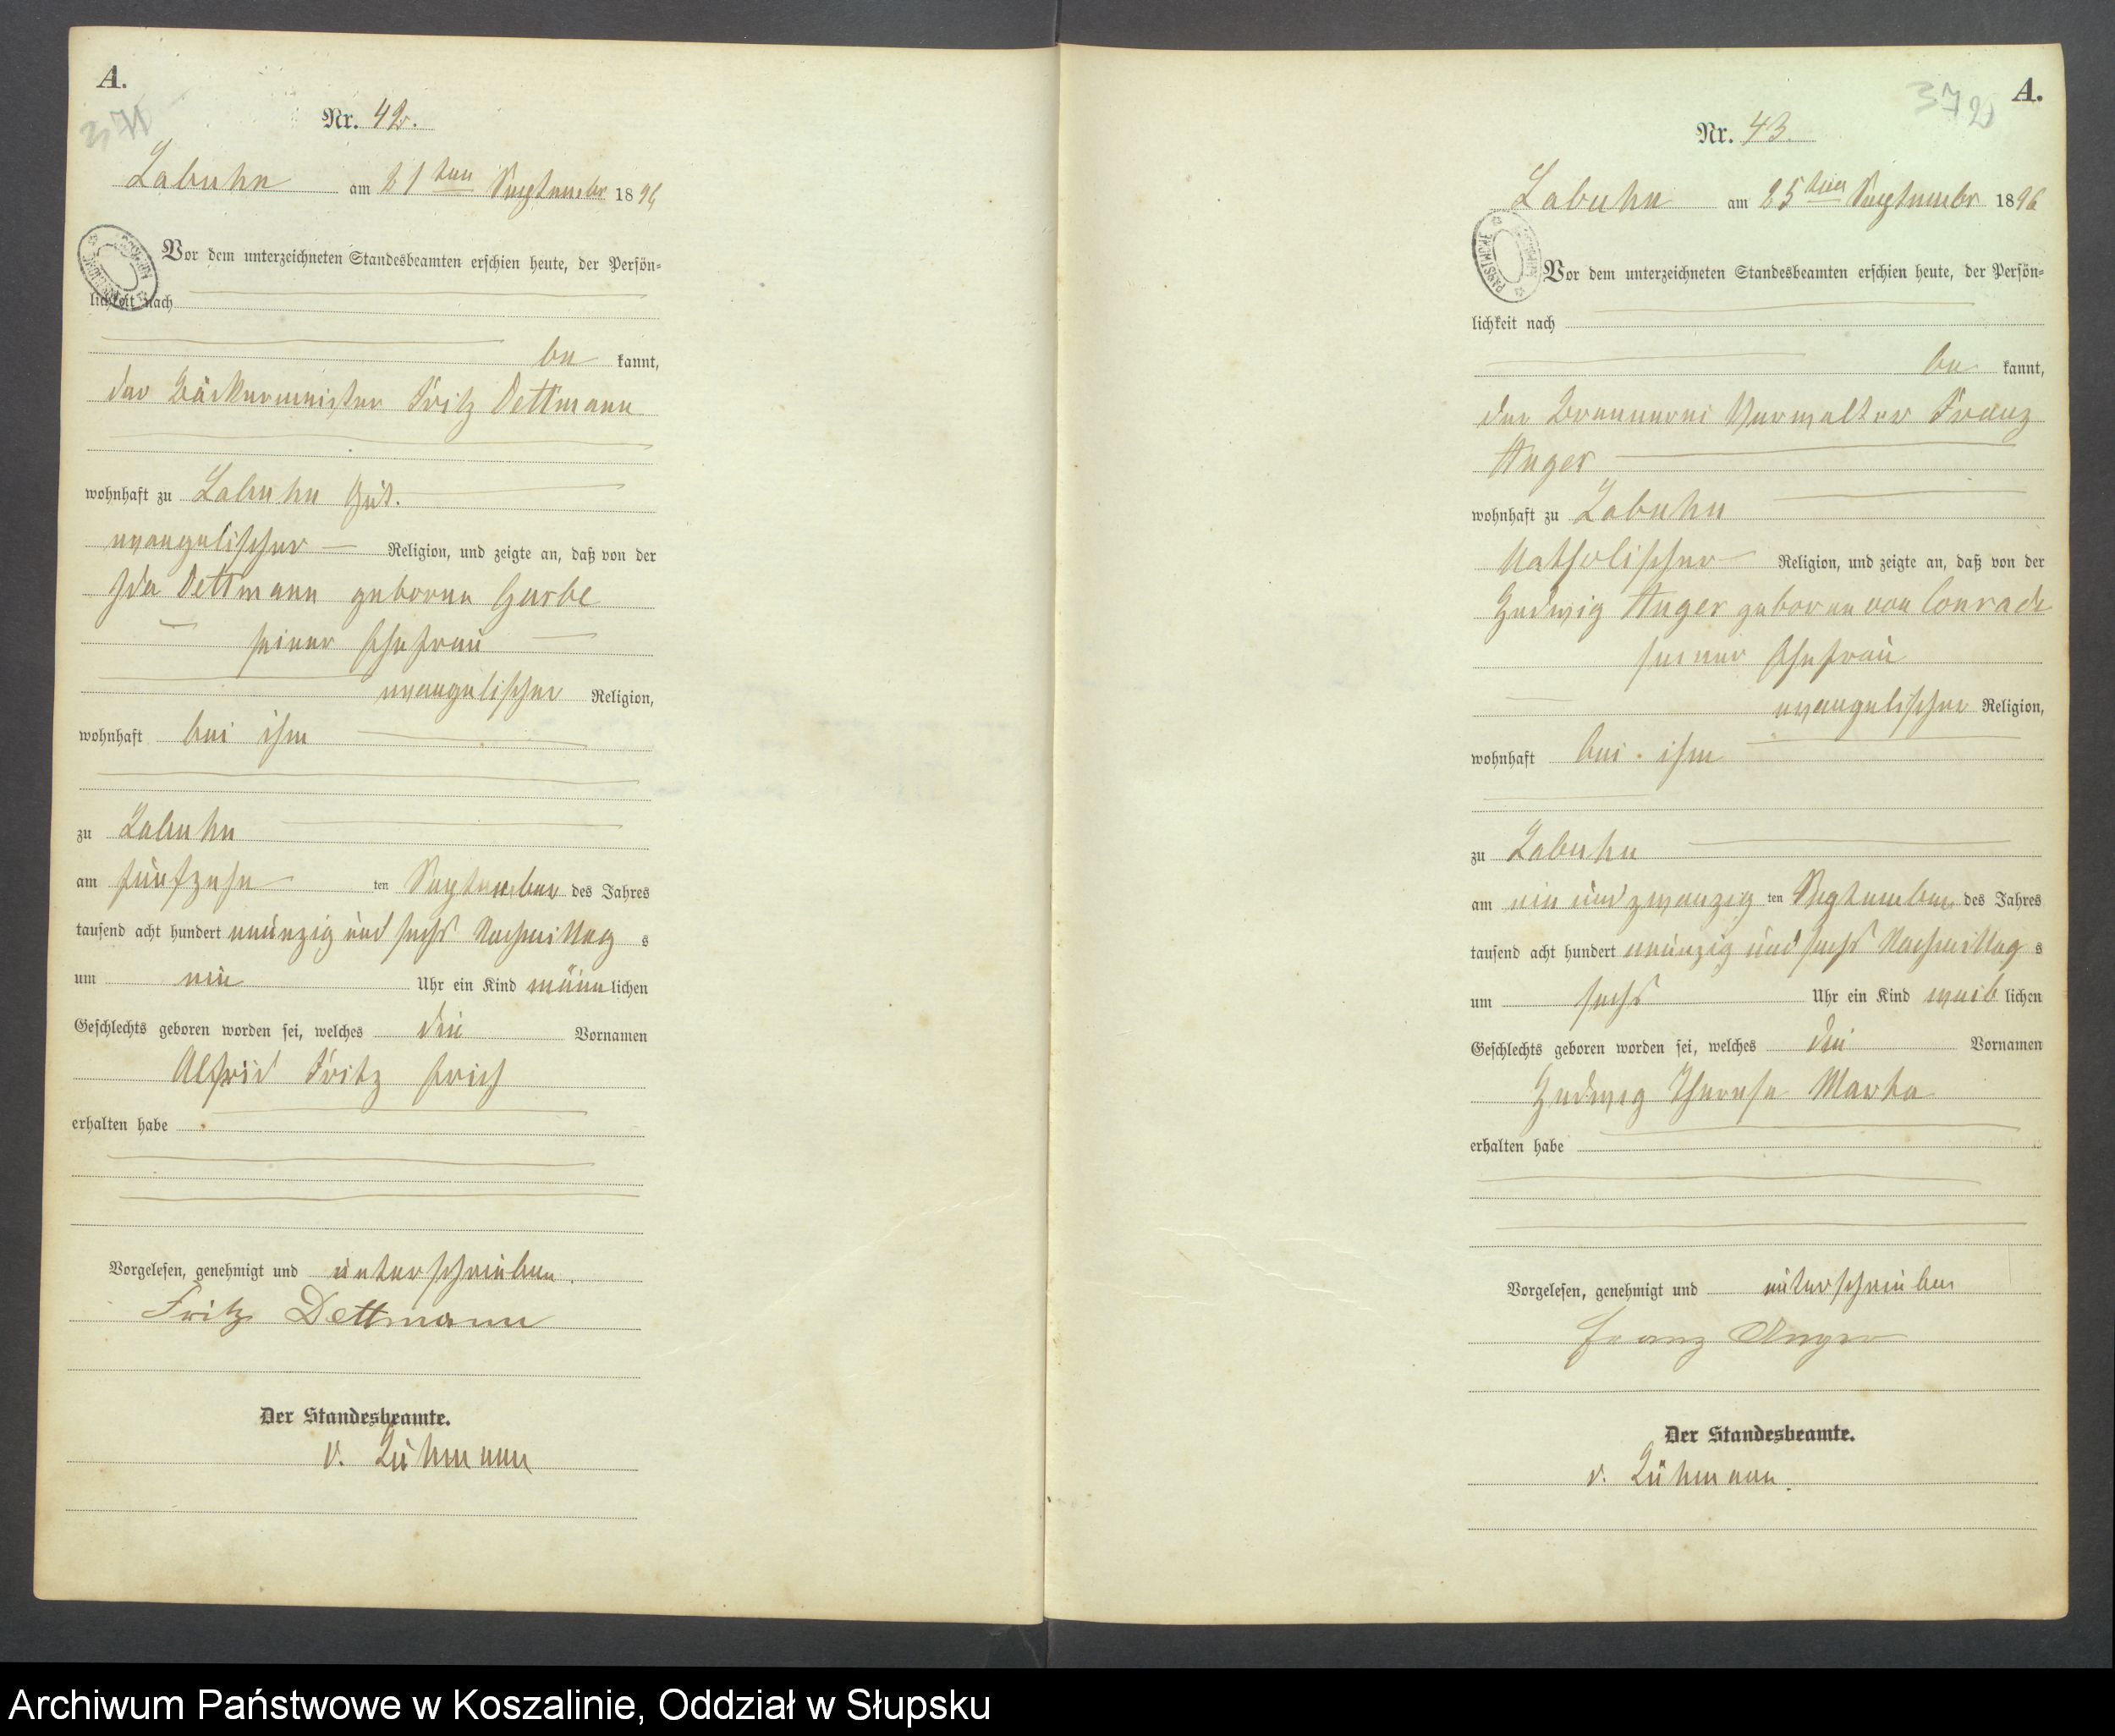 A.
371
Nr. 42.
Labuhn am 21ten September 1896
Vor dem unterzeichneten Standesbeamten erschien heute, der Persön=
lichkeit nach
be kannt,
der Bäckermeister Fritz Dettmann
wohnhaft zu Labuhn Gut.
evangelischer Religion, und zeigte an, daß von der
Ida Dettmann geborene Garbe
seiner Ehefrau
evangelischer Religion,
wohnhaft bei ihm
zu Labuhn
am fünfzehn ten September des Jahres
tausend acht hundert neunzig und sechs Nachmittag s
um ein Uhr ein Kind männ lichen
Geschlechts geboren worden sei, welches die Vornamen
Alfrid Fritz Erich
erhalten habe
Vorgelesen, genehmigt und unterschrieben.
Fritz Dettmann
Der Standesbeamte.
v. Lühmann
A.
372
Nr. 43.
Labuhn am 25ten September 1896
Vor dem unterzeichneten Standesbeamten erschien heute, der Persön=
lichkeit nach
be kannt,
der Brennerei Verwalter Franz
Anger
wohnhaft zu Labuhn
katholischer Religion, und zeigte an, daß von der
Hedwig Anger geborene von Conrade
seiner Ehefrau
evangelischer Religion,
wohnhaft bei ihm
zu Labuhn
am ein und zwanzig ten September des Jahres
tausend acht hundert neunzig und sechs Nachmittag s
um sechs Uhr ein Kind weib lichen
Geschlechts geboren worden sei, welches die Vornamen
Hedwig Therese Marta
erhalten habe
Vorgelesen, genehmigt und unterschrieben
Franz Anger
Der Standesbeamte.
v. Lühmann.
Archiwum Państwowe w Koszalinie, Oddział w Słupsku